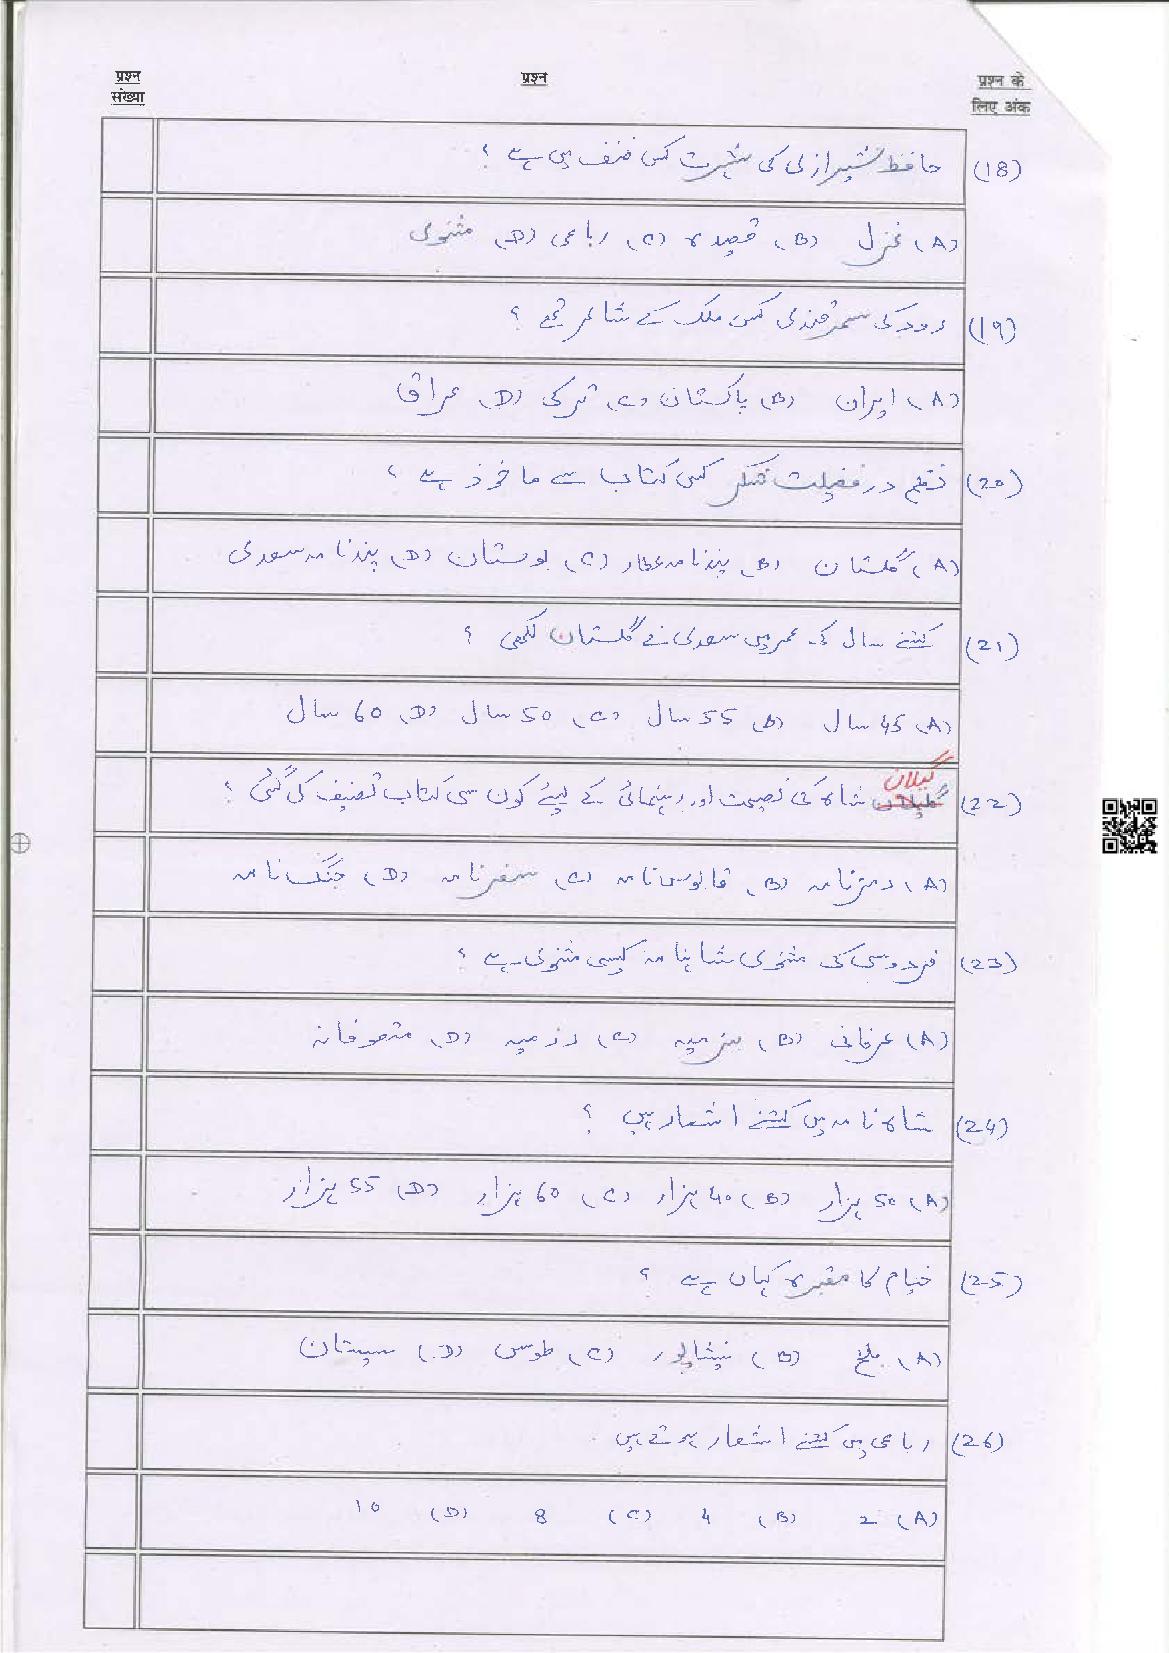 प्रश्न संख्या
प्रश्न
प्रश्न के लिए अंक
(18) حافظ شیرازی کی شہرت کس صنف میں ہے ؟
(A) غزل (B) قصیدہ (C) رباعی (D) مثنوی
(19) رودکی سمرقندی کس ملک کے شاعر تھے ؟
(A) ایران (B) پاکستان (C) ترکی (D) عراق
(20) نظم در فضیلت شکر کس کتاب سے ماخوذ ہے ؟
(A) گلستان (B) پندنامہ عطار (C) بوستان (D) پندنامہ سعدی
(21) کتنے سال کی عمر میں سعدی نے گلستان لکھی ؟
(A) 45 سال (B) 55 سال (C) 50 سال (D) 60 سال
(22) گیلان شاہ کی نصیحت اور رہنمائی کے لیے کون سی کتاب تصنیف کی گئی ؟
(A) رمزنامہ (B) قابوس نامہ (C) سفرنامہ (D) جنگ نامہ
(23) فردوسی کی مثنوی شاہنامہ کیسی مثنوی ہے ؟
(A) عرفانی (B) بزمیہ (C) رزمیہ (D) متصوفانہ
(24) شاہ نامہ میں کتنے اشعار ہیں ؟
(A) 50 ہزار (B) 40 ہزار (C) 60 ہزار (D) 55 ہزار
(25) خیام کا مقبرہ کہاں ہے ؟
(A) بلخ (B) نیشاپور (C) طوس (D) سیستان
(26) رباعی میں کتنے اشعار ہوتے ہیں
(A) 2 (B) 4 (C) 8 (D) 10